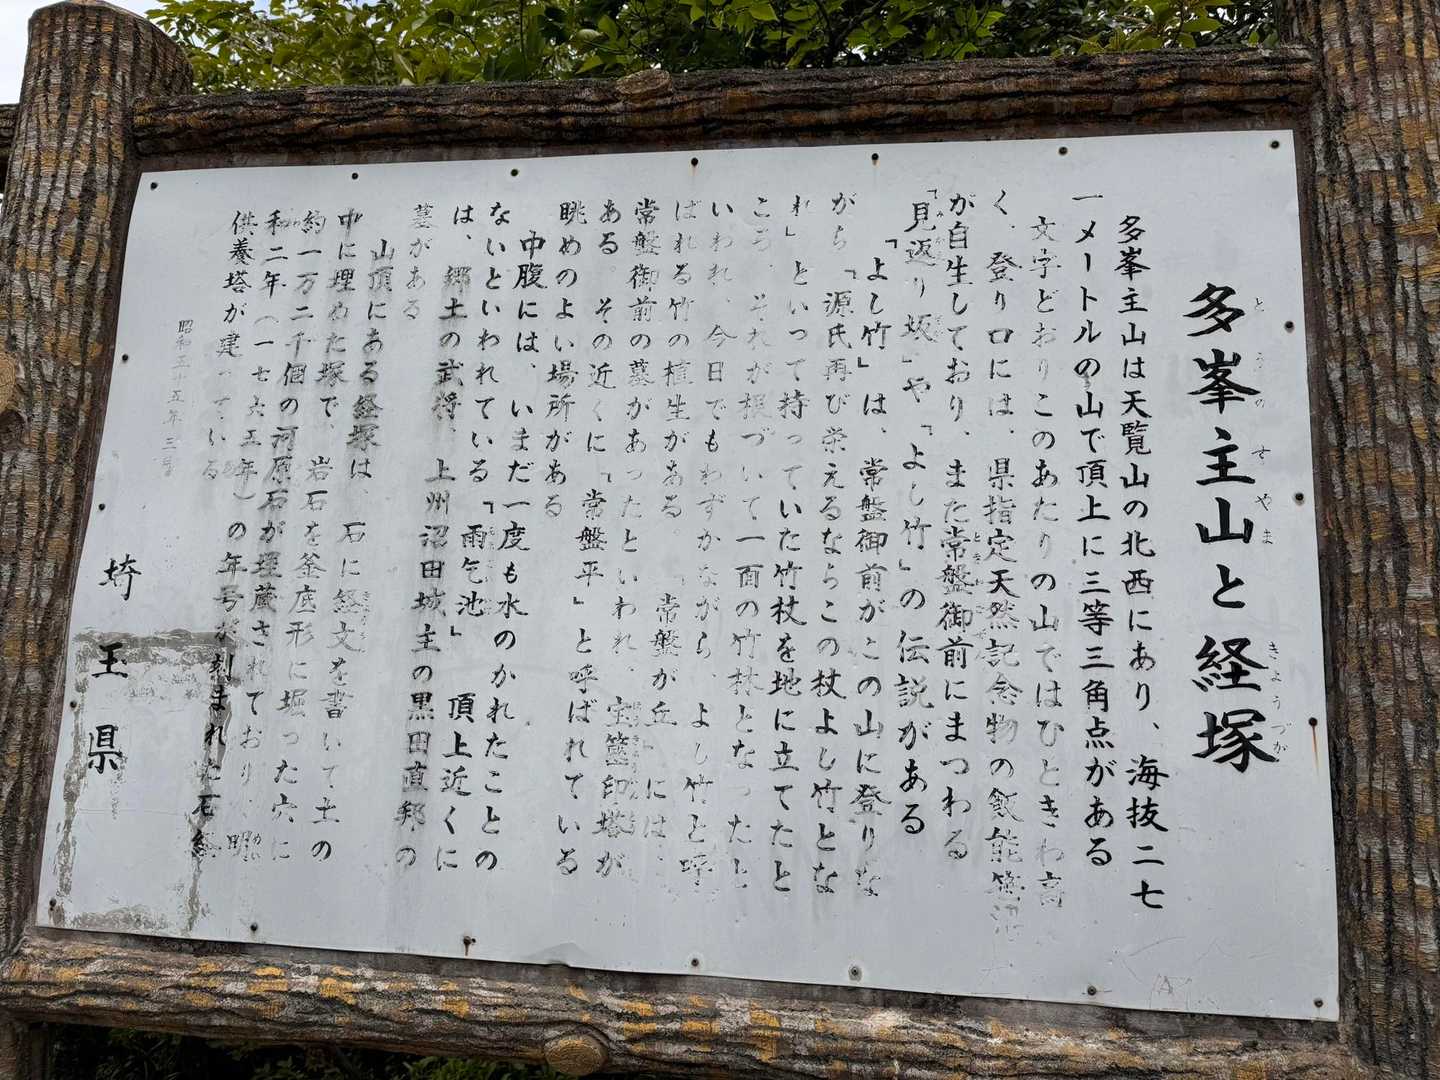 多峯主山と経塚
とうのすやま きょうづか
多峯主山は天覧山の北西にあり、海抜二七
一メートルの山で頂上に三等三角点がある
文字どおりこのあたりの山ではひときわ高
く、登り口には、県指定天然記念物の飯能笹
が自生しており、また常盤御前にまつわる
「見返り坂」や「よし竹」の伝説がある
「よし竹」は、常盤御前がこの山に登りな
がら「源氏再び栄えるならこの杖よし竹とな
れ」といって持っていた竹杖を地に立てたと
ころ、それが根づいて一面の竹林となったと
いわれ、今日でもわずかながら、よし竹と呼
ばれる竹の植生がある 「常盤が丘」には、
常盤御前の墓があったといわれ、宝篋印塔が
ある その近くに「常盤平」と呼ばれている
眺めのよい場所がある
中腹には、いまだ一度も水のかれたことの
ないといわれている「雨乞池」 頂上近くに
は、郷土の武将、上州沼田城主の黒田直邦の
墓がある
山頂にある経塚は、石に経文を書いて土の
中に埋めた塚で、岩石を釜底形に堀った穴に
約一万二千個の河原石が埋蔵されており、明
和二年(一七六五年)の年号が刻まれた石経
供養塔が建っている
昭和五十五年三月
埼玉県